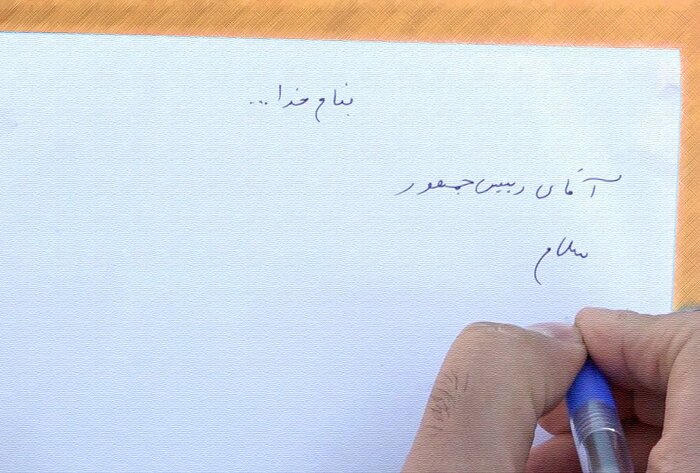 بنام خدا...
آقای رییس جمهور
سلام